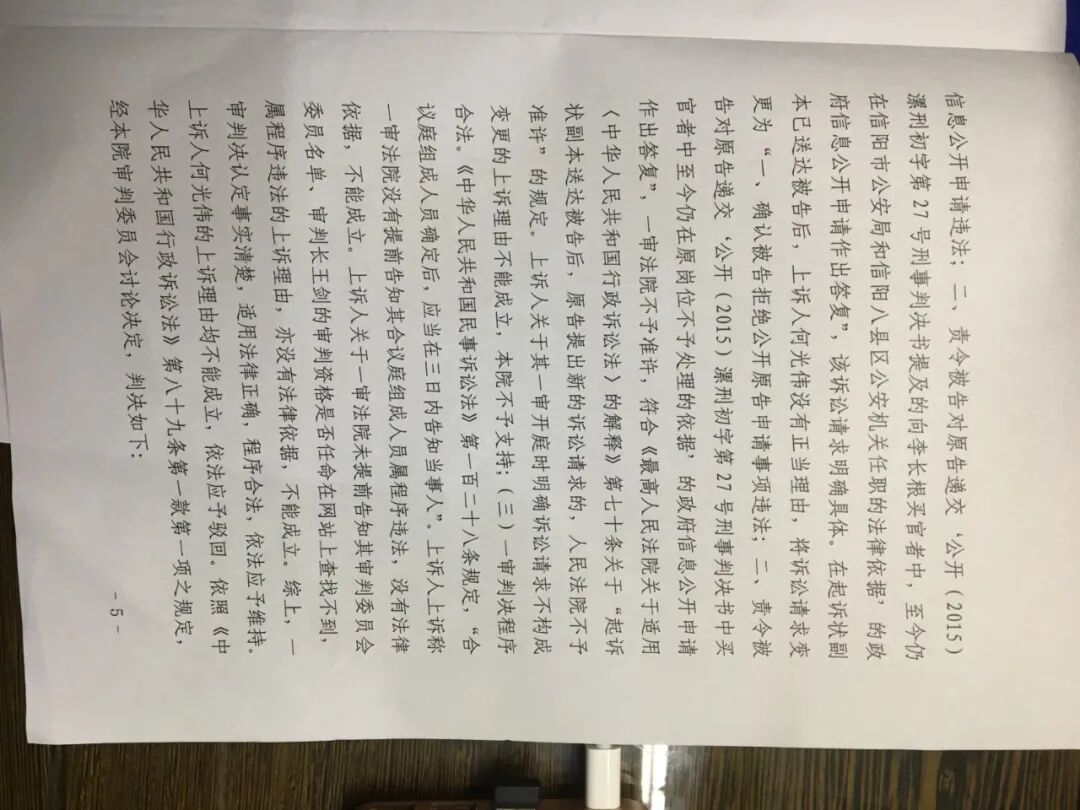 信息公开申请违法；二、责令被告对原告递交‘公开（2015）
漯刑初字第 27 号刑事判决书提及的向李长根买官者中，至今仍
在信阳市公安局和信阳八县区公安机关任职的法律依据’的政
府信息公开申请作出答复”，该诉讼请求明确具体。在起诉状副
本已送达被告后，上诉人何光伟没有正当理由，将诉讼请求变
更为“一、确认被告拒绝公开原告申请事项违法；二、责令被
告对原告递交‘公开（2015）漯刑初字第 27 号刑事判决书中买
官者中至今仍在原岗位不予处理的依据’的政府信息公开申请
作出答复”，一审法院不予准许，符合《最高人民法院关于适用
〈中华人民共和国行政诉讼法〉的解释》第七十条关于“起诉
状副本送达被告后，原告提出新的诉讼请求的，人民法院不予
准许”的规定。上诉人关于其一审开庭时明确诉讼请求不构成
变更的上诉理由不能成立，本院不予支持；（三）一审判决程序
合法。《中华人民共和国民事诉讼法》第一百二十八条规定，“合
议庭组成人员确定后，应当在三日内告知当事人”。上诉人上诉称
一审法院没有提前告知其合议庭组成人员属程序违法，没有法律
依据，不能成立。上诉人关于一审法院未提前告知其审判委员会
委员名单、审判长王剑的审判资格是否任命在网站上查找不到，
属程序违法的上诉理由，亦没有法律依据，不能成立。综上，一
审判决认定事实清楚，适用法律正确，程序合法，依法应予维持。
上诉人何光伟的上诉理由均不能成立，依法应予驳回。依照《中
华人民共和国行政诉讼法》第八十九条第一款第一项之规定，
经本院审判委员会讨论决定，判决如下：
- 5 -